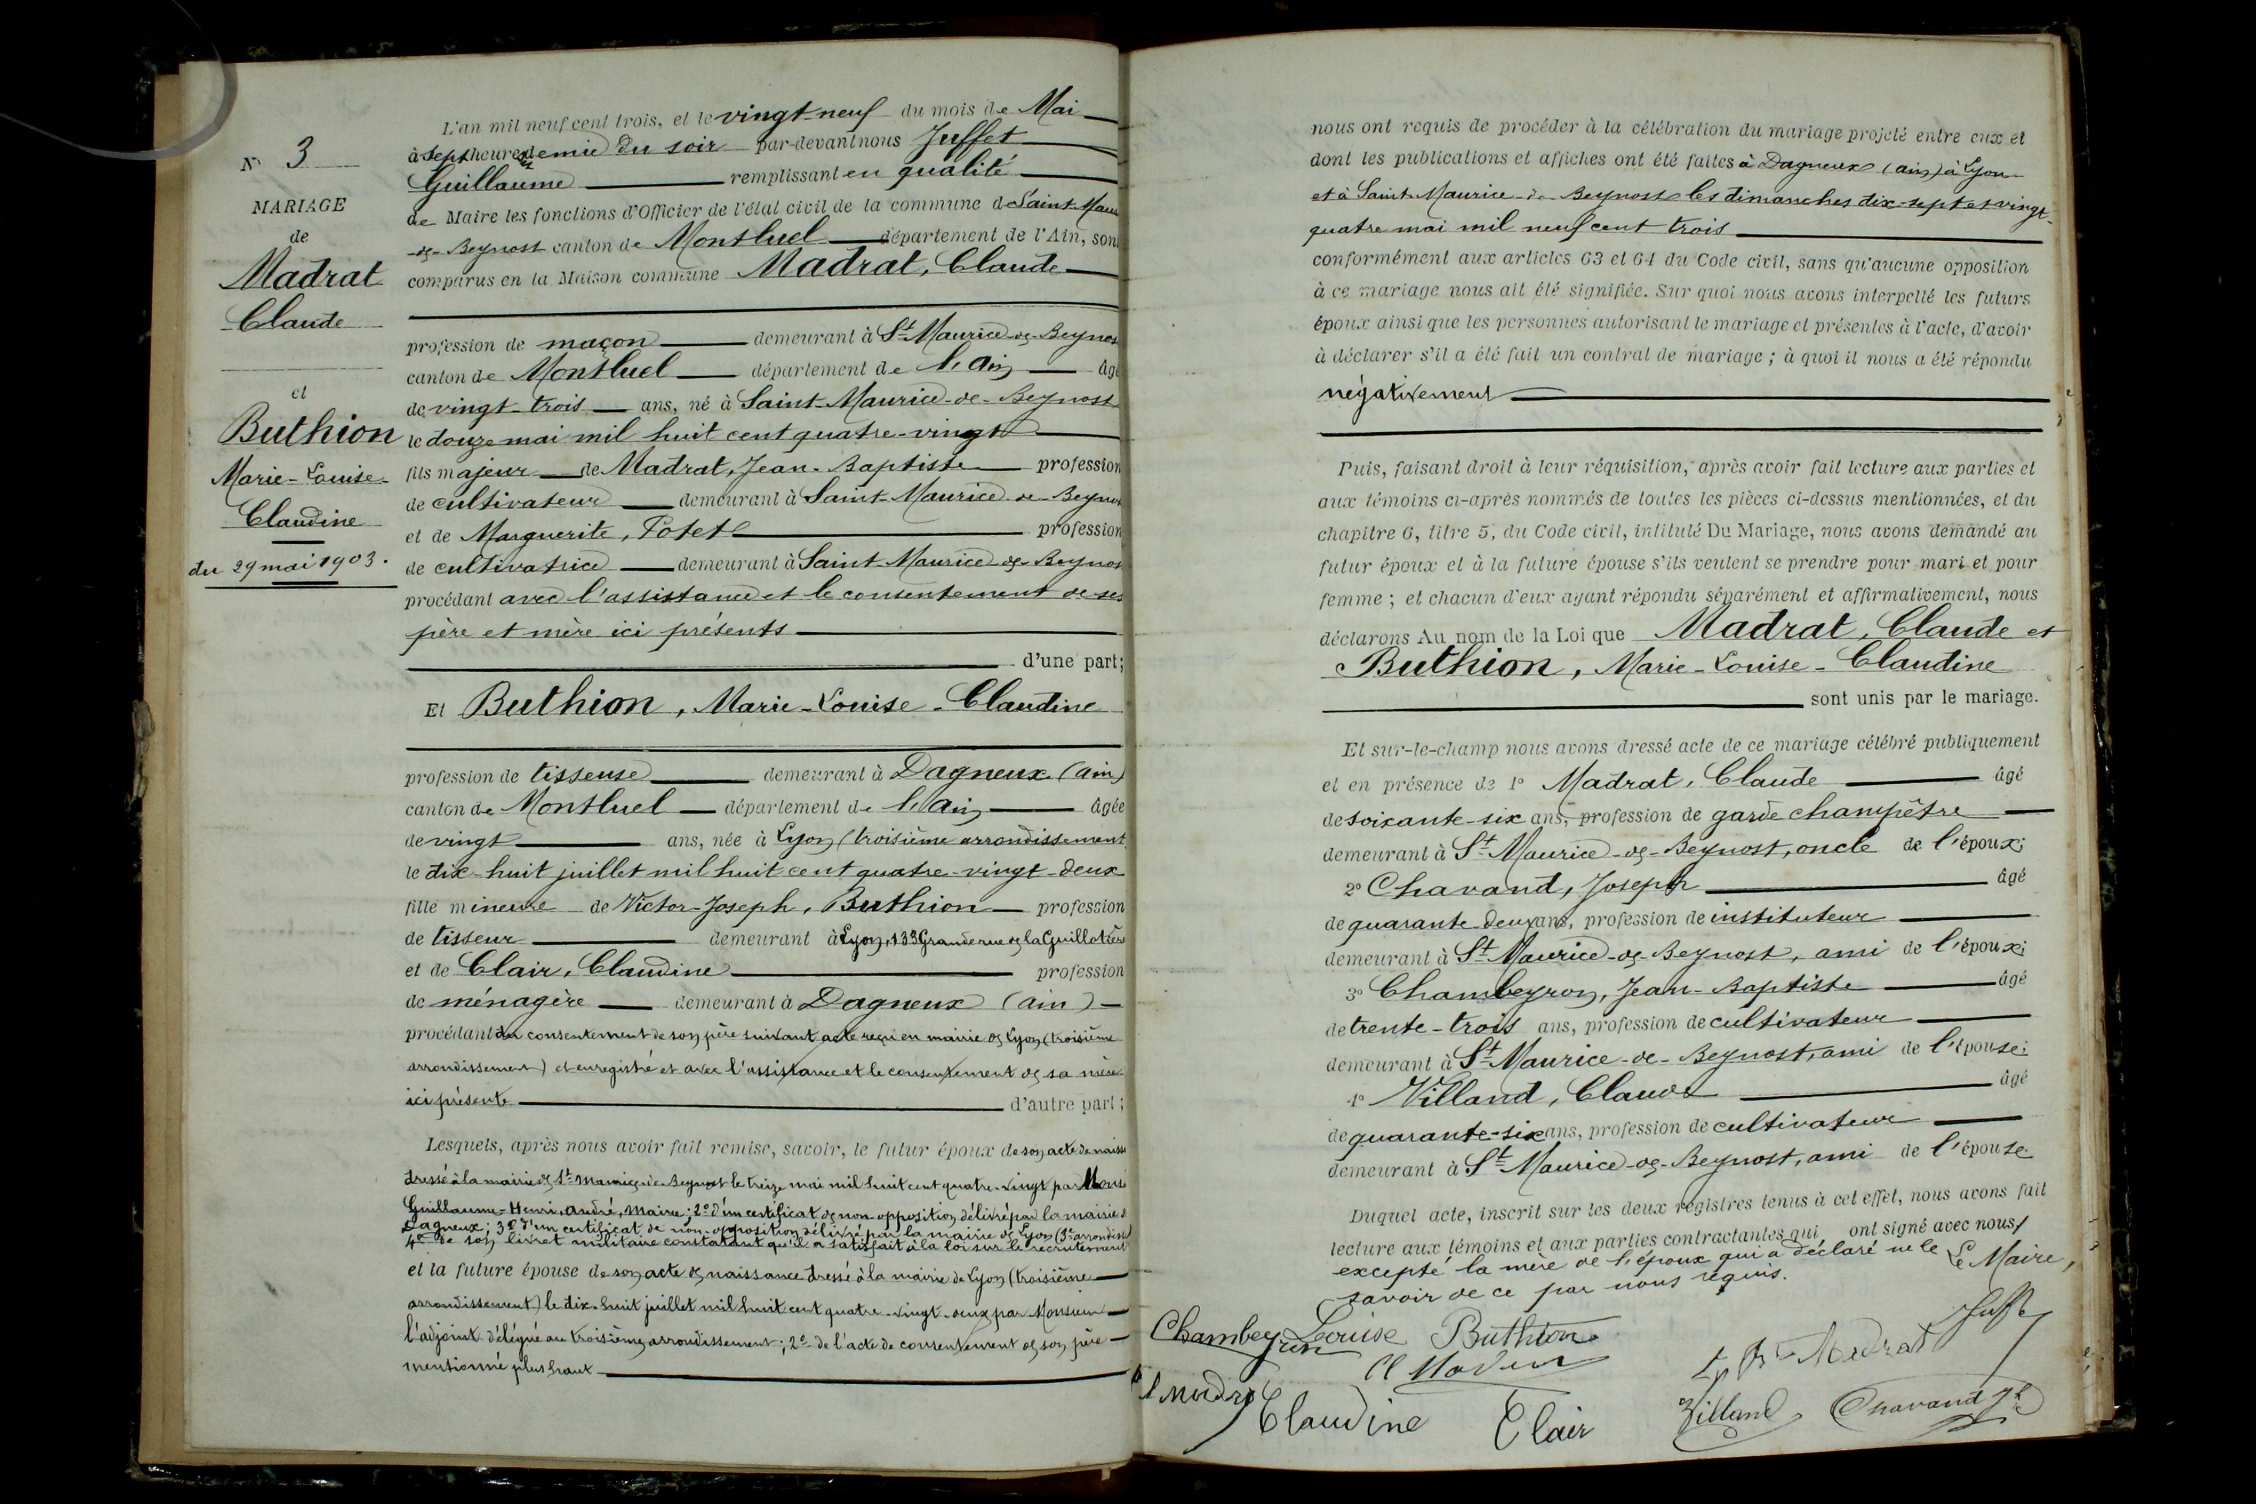 N° 3
MARIAGE
de
Madrat
Claude
et
Buthion
Marie-Louise-
Claudine
du 29 mai 1903.
L'an mil neuf cent trois, et le vingt-neuf du mois de Mai
à sept heures demie du soir par-devant nous Juffet
Guillaume remplissant en qualité
de Maire les fonctions d'Officier de l'état civil de la commune de Saint-Mau
-de-Beynost canton de Montluel département de l'Ain, son
comparus en la Maison commune Madrat, Claude
profession de maçon demeurant à St-Maurice-de-Beynos
canton de Montluel département de l'Ain âgé
de vingt-trois ans, né à Saint-Maurice-de-Beynost
le douze mai mil huit cent quatre-vingt
fils majeur de Madrat, Jean-Baptiste profession
de cultivateur demeurant à Saint-Maurice-de-Beynos
et de Marguerite, Potet profession
de cultivatrice demeurant à Saint-Maurice-de-Beynos
procédant avec l'assistance et le consentement de ses
père et mère ici présents
d'une part;
Et Buthion, Marie-Louise-Claudine
profession de tisseuse demeurant à Dagneux (ain)
canton de Montluel département de l'Ain âgée
de vingt ans, née à Lyon (troisième arrondissement
le dix-huit juillet mil huit cent quatre-vingt-deux
fille mineure de Victor-Joseph, Buthion profession
de tisseur demeurant à Lyon, 133 Grande rue de la Guillotière
et de Clair, Claudine profession
de ménagère demeurant à Dagneux (ain)
procédant du consentement de son père suivant acte reçu en mairie de Lyon (troisième
arrondissement) et enregistré et avec l'assistance et le consentement de sa mère
ici présente d'autre part;
Lesquels, après nous avoir fait remise, savoir, le futur époux de son acte de naiss
dressé à la mairie de St-Maurice-de-Beynost le treize mai mil huit cent quatre-vingt par Monsi
Guillaume-Henri, andré, Maire; 2° d'un certificat de non-opposition délivré par la mairie d
Dagneux; 3° d'un certificat de non-opposition délivré par la mairie de Lyon (3e arrondisst)
4° de son livret militaire constatant qu'il a satisfait à la loi sur le recrutement
et la future épouse de son acte de naissance dressé à la mairie de Lyon (troisième
arrondissement) le dix-huit juillet mil huit cent quatre-vingt-deux par Monsieur
l'adjoint délégué au troisième arrondissement; 2° de l'acte de consentement de son père
mentionné plus haut
nous ont requis de procéder à la célébration du mariage projeté entre eux et
dont les publications et affiches ont été faites à Dagneux (ain) à Lyon
et à Saint-Maurice-de-Beynost les dimanches dix-sept et vingt-
quatre mai mil neuf cent trois
conformément aux articles 63 et 64 du Code civil, sans qu'aucune opposition
à ce mariage nous ait été signifiée. Sur quoi nous avons interpellé les futurs
époux ainsi que les personnes autorisant le mariage et présentes à l'acte, d'avoir
à déclarer s'il a été fait un contrat de mariage; à quoi il nous a été répondu
négativement
Puis, faisant droit à leur réquisition, après avoir fait lecture aux parties et
aux témoins ci-après nommés de toutes les pièces ci-dessus mentionnées, et du
chapitre 6, titre 5, du Code civil, intitulé Du Mariage, nous avons demandé au
futur époux et à la future épouse s'ils veulent se prendre pour mari et pour
femme; et chacun d'eux ayant répondu séparément et affirmativement, nous
déclarons Au nom de la Loi que Madrat, Claude et
Buthion, Marie-Louise-Claudine
sont unis par le mariage.
Et sur-le-champ nous avons dressé acte de ce mariage célébré publiquement
et en présence de 1° Madrat, Claude âgé
de soixante-six ans, profession de garde champêtre
demeurant à St-Maurice-de-Beynost, oncle de l'époux;
2° Chavand, Joseph âgé
de quarante-deux ans, profession de instituteur
demeurant à St-Maurice-de-Beynost, ami de l'époux;
3° Chambeyron, Jean-Baptiste âgé
de trente-trois ans, profession de cultivateur
demeurant à St-Maurice-de-Beynost, ami de l'épouse;
4° Villand, Claude âgé
de quarante-six ans, profession de cultivateur
demeurant à St-Maurice-de-Beynost, ami de l'épouse
Duquel acte, inscrit sur les deux registres tenus à cet effet, nous avons fait
lecture aux témoins et aux parties contractantes qui ont signé avec nous,
excepté la mère de l'époux qui a déclaré ne le
savoir de ce par nous requis. Le Maire,
Juffet
Chambeyron Louise Buthion
Madrat
Claudine Clair
Villand Chavand Jh